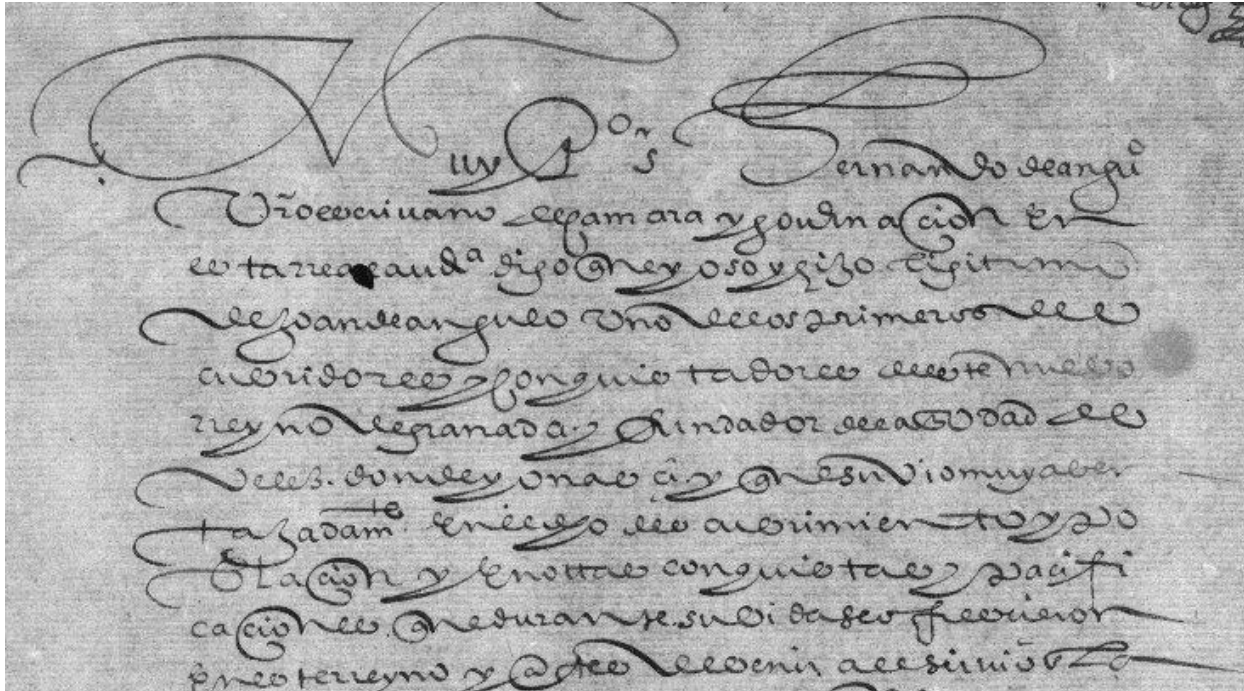 Muy P^os S^or Hernando de angu^o
v̄ro escrivano de camara y governacion en
esta rreal aud^a digo que yo soy hijo ligitimo
de joan de angulo uno de los primeros des
cubridores y conquistadores deste nuebo
rreyno de granada y fundador de la ciudad de
velez donde yo naci y que sirvio muy aben
tajadam^te en el dho descubrimiento y po
blacion y en otras conquistas y pacifi
caciones que durante su vida se ofrecieron
en este rreyno y antes de venir a el sirvio